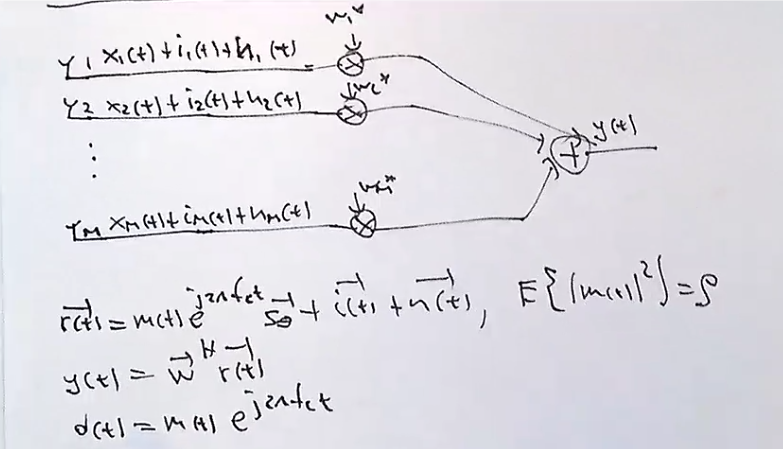 w₁*
Y1 x₁(t)+i₁(t)+n₁(t)
w₂*
Y2 x₂(t)+i₂(t)+n₂(t)
y(t)
+
⋮
wₘ*
Yₘ xₘ(t)+iₘ(t)+nₘ(t)
r⃗(t) = m(t) e^{j2πf_ct} s⃗_θ + i⃗(t) + n⃗(t), E{|m(t)|²} = ρ
y(t) = w⃗^H r⃗(t)
d(t) = m(t) e^{j2πf_ct}